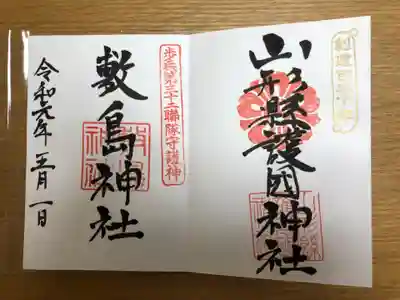 山形縣護國神社
歩兵第三十二聯隊守護神
敷島神社
令和元年五月一日